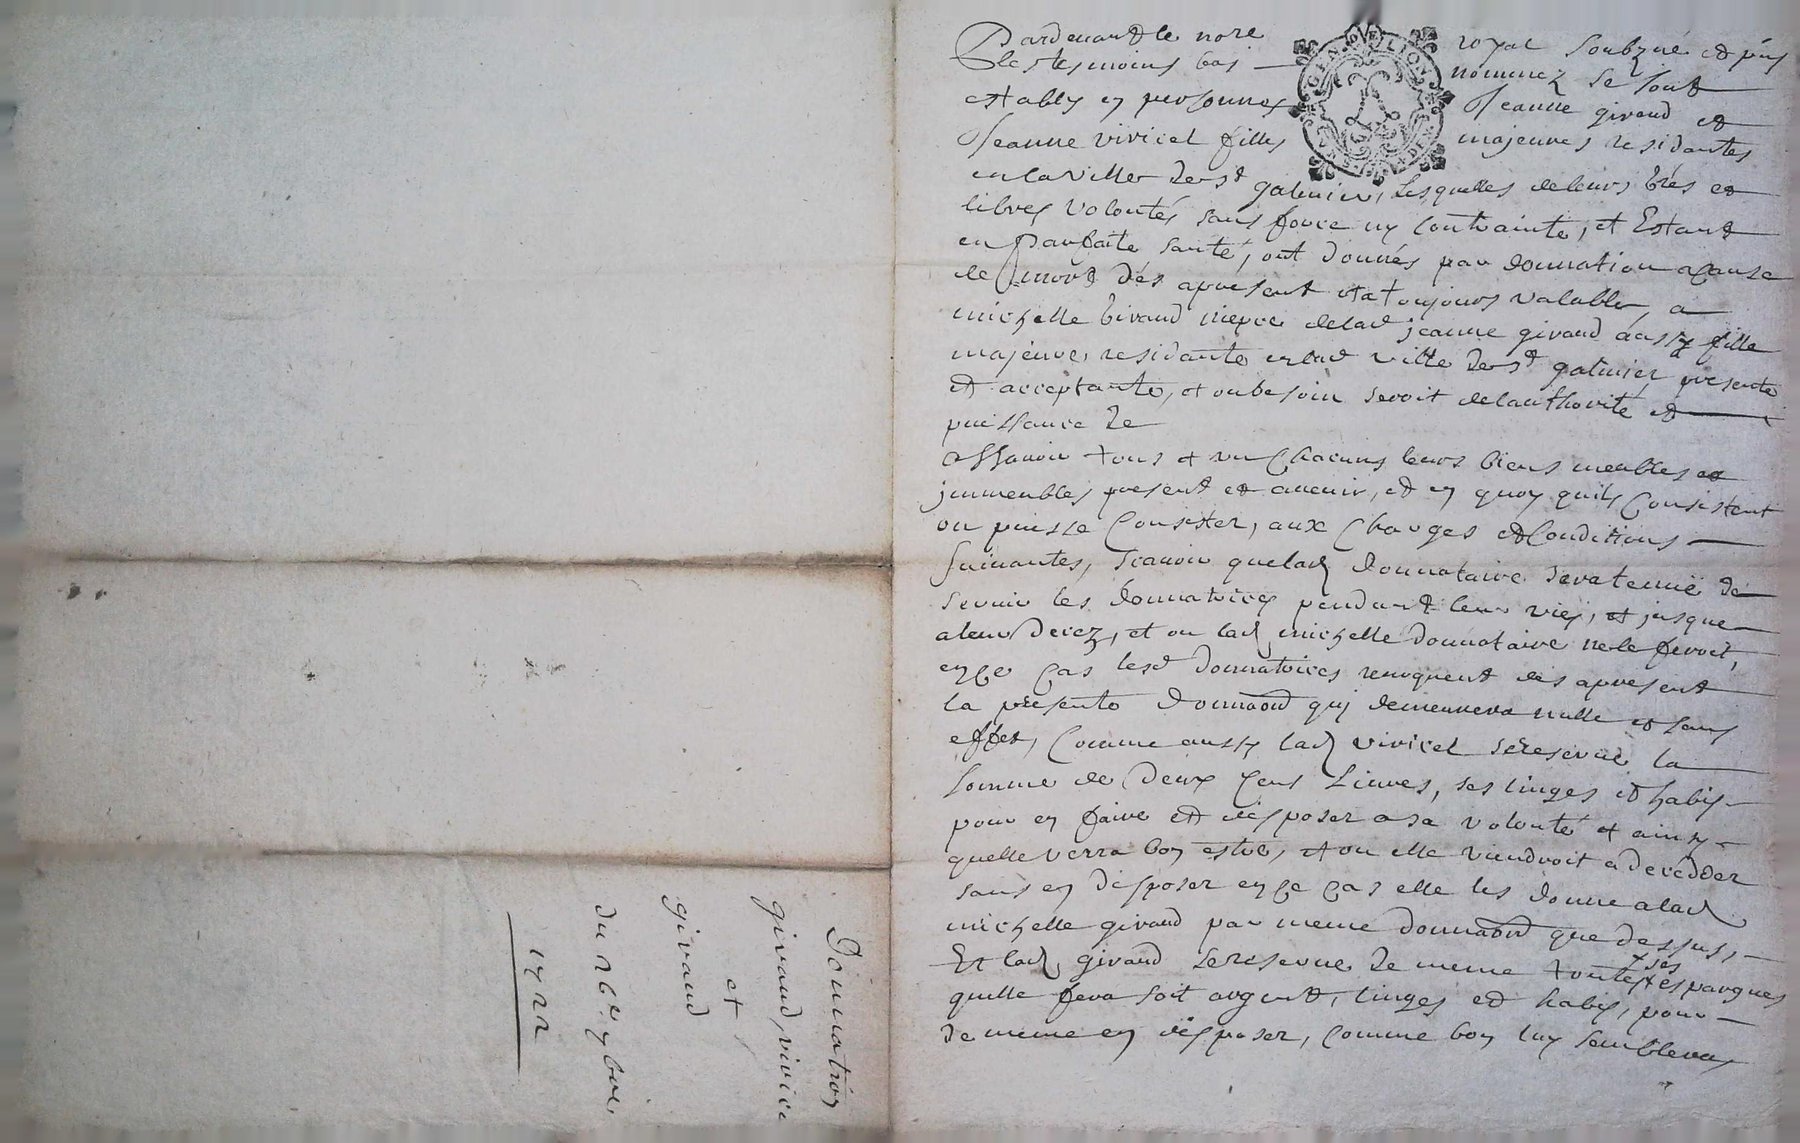 Pardevant le nore royal soubzné et pñs
les tesmoins bas nommez se sont
establys en personnes Jeanne giraud et
Jeanne vivicel filles majeures residantes
en la ville de st galmier, Lesquelles de leurs brés et
libres volontés sans force ny contrainte, et Estant
en parfaite santé, ont donnés par donnation a cause
de mort dés apresent et a toujours valable, a
michelle Giraud niepce de lad jeanne giraud aussy fille
majeure, residante en lad ville de st galmier presente
et acceptante, et ou besoin seroit de lauthorité et
puissance de
assavoir tous et un chacuns leurs biens meubles et
jmmeubles present et avenir, et en quoy quils consistent
ou puisse consister, aux charges et conditions
suivantes, scavoir que lad donnataire sera tenuë de
servir les donnatrices pendant leur vies, et jusque
a leur decez, et ou lad michelle donnataire ne le feroit,
en ce cas lesd donnatrices revoquent dés apresent
la présente donnaon qui demeurera nulle et sans
effet, Comme aussy lad vivicel se reserve la
somme de deux cens Livres, ses linges et habis
pour en faire et disposer a sa volonté et ainsy
quelle verra bon estre, et ou elle viendroit a decedder
sans en disposer en ce cas elle les donne a lad
michelle giraud par meme donnaon que dessus,
Et lad giraud se reserve de meme toutes ses espargnes
quelle fera soit argent, linges et habis, pour
de meme en disposer, comme bon luy semblera
Donnation
giraud, vivicel
et
giraud
du 26e 7bre
1722
GEN DE LION